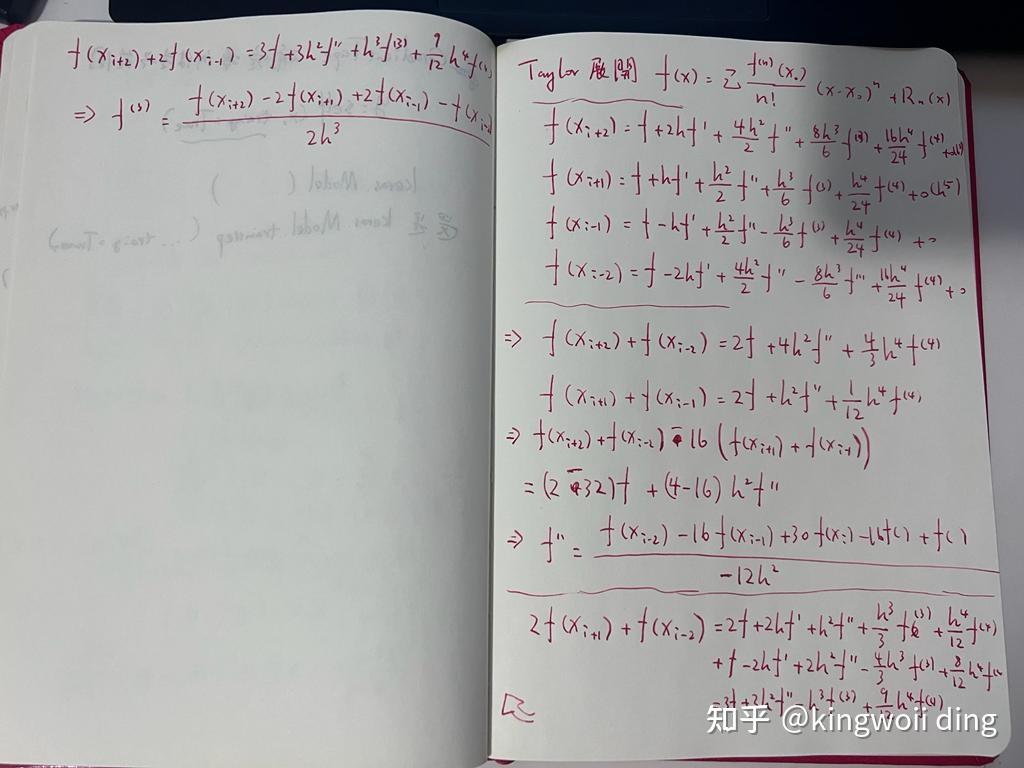 f(x_{i+2})+2f(x_{i-1})=3f+3h²f''+h³f⁽³⁾+9/12 h⁴f⁽⁴⁾
⇒ f⁽³⁾ = (f(x_{i+2})-2f(x_{i+1})+2f(x_{i-1})-f(x_{i-2}))/2h³
Taylor 展開 f(x)=Σ f⁽ⁿ⁾(x₀)/n! (x-x₀)ⁿ+Rₙ(x)
f(x_{i+2})=f+2hf'+4h²/2 f''+8h³/6 f⁽³⁾+16h⁴/24 f⁽⁴⁾+o(h⁵)
f(x_{i+1})=f+hf'+h²/2 f''+h³/6 f⁽³⁾+h⁴/24 f⁽⁴⁾+o(h⁵)
f(x_{i-1})=f-hf'+h²/2 f''-h³/6 f⁽³⁾+h⁴/24 f⁽⁴⁾+o
f(x_{i-2})=f-2hf'+4h²/2 f''-8h³/6 f'''+16h⁴/24 f⁽⁴⁾+o
⇒ f(x_{i+2})+f(x_{i-2})=2f+4h²f''+4/3 h⁴f⁽⁴⁾
f(x_{i+1})+f(x_{i-1})=2f+h²f''+1/12 h⁴f⁽⁴⁾
⇒ f(x_{i+2})+f(x_{i-2})-16(f(x_{i+1})+f(x_{i-1}))
=(2-32)f+(4-16)h²f''
⇒ f''=(f(x_{i-2})-16f(x_{i-1})+30f(x_i)-16f()+f())/-12h²
2f(x_{i+1})+f(x_{i-2})=2f+2hf'+h²f''+h³/3 f⁽³⁾+h⁴/12 f⁽⁴⁾
+f-2hf'+2h²f''-4/3 h³f⁽³⁾+8/12 h⁴f⁽⁴⁾
=3f+3h²f''-h³f⁽³⁾+9/12 h⁴f⁽⁴⁾
知乎 @kingwoii ding